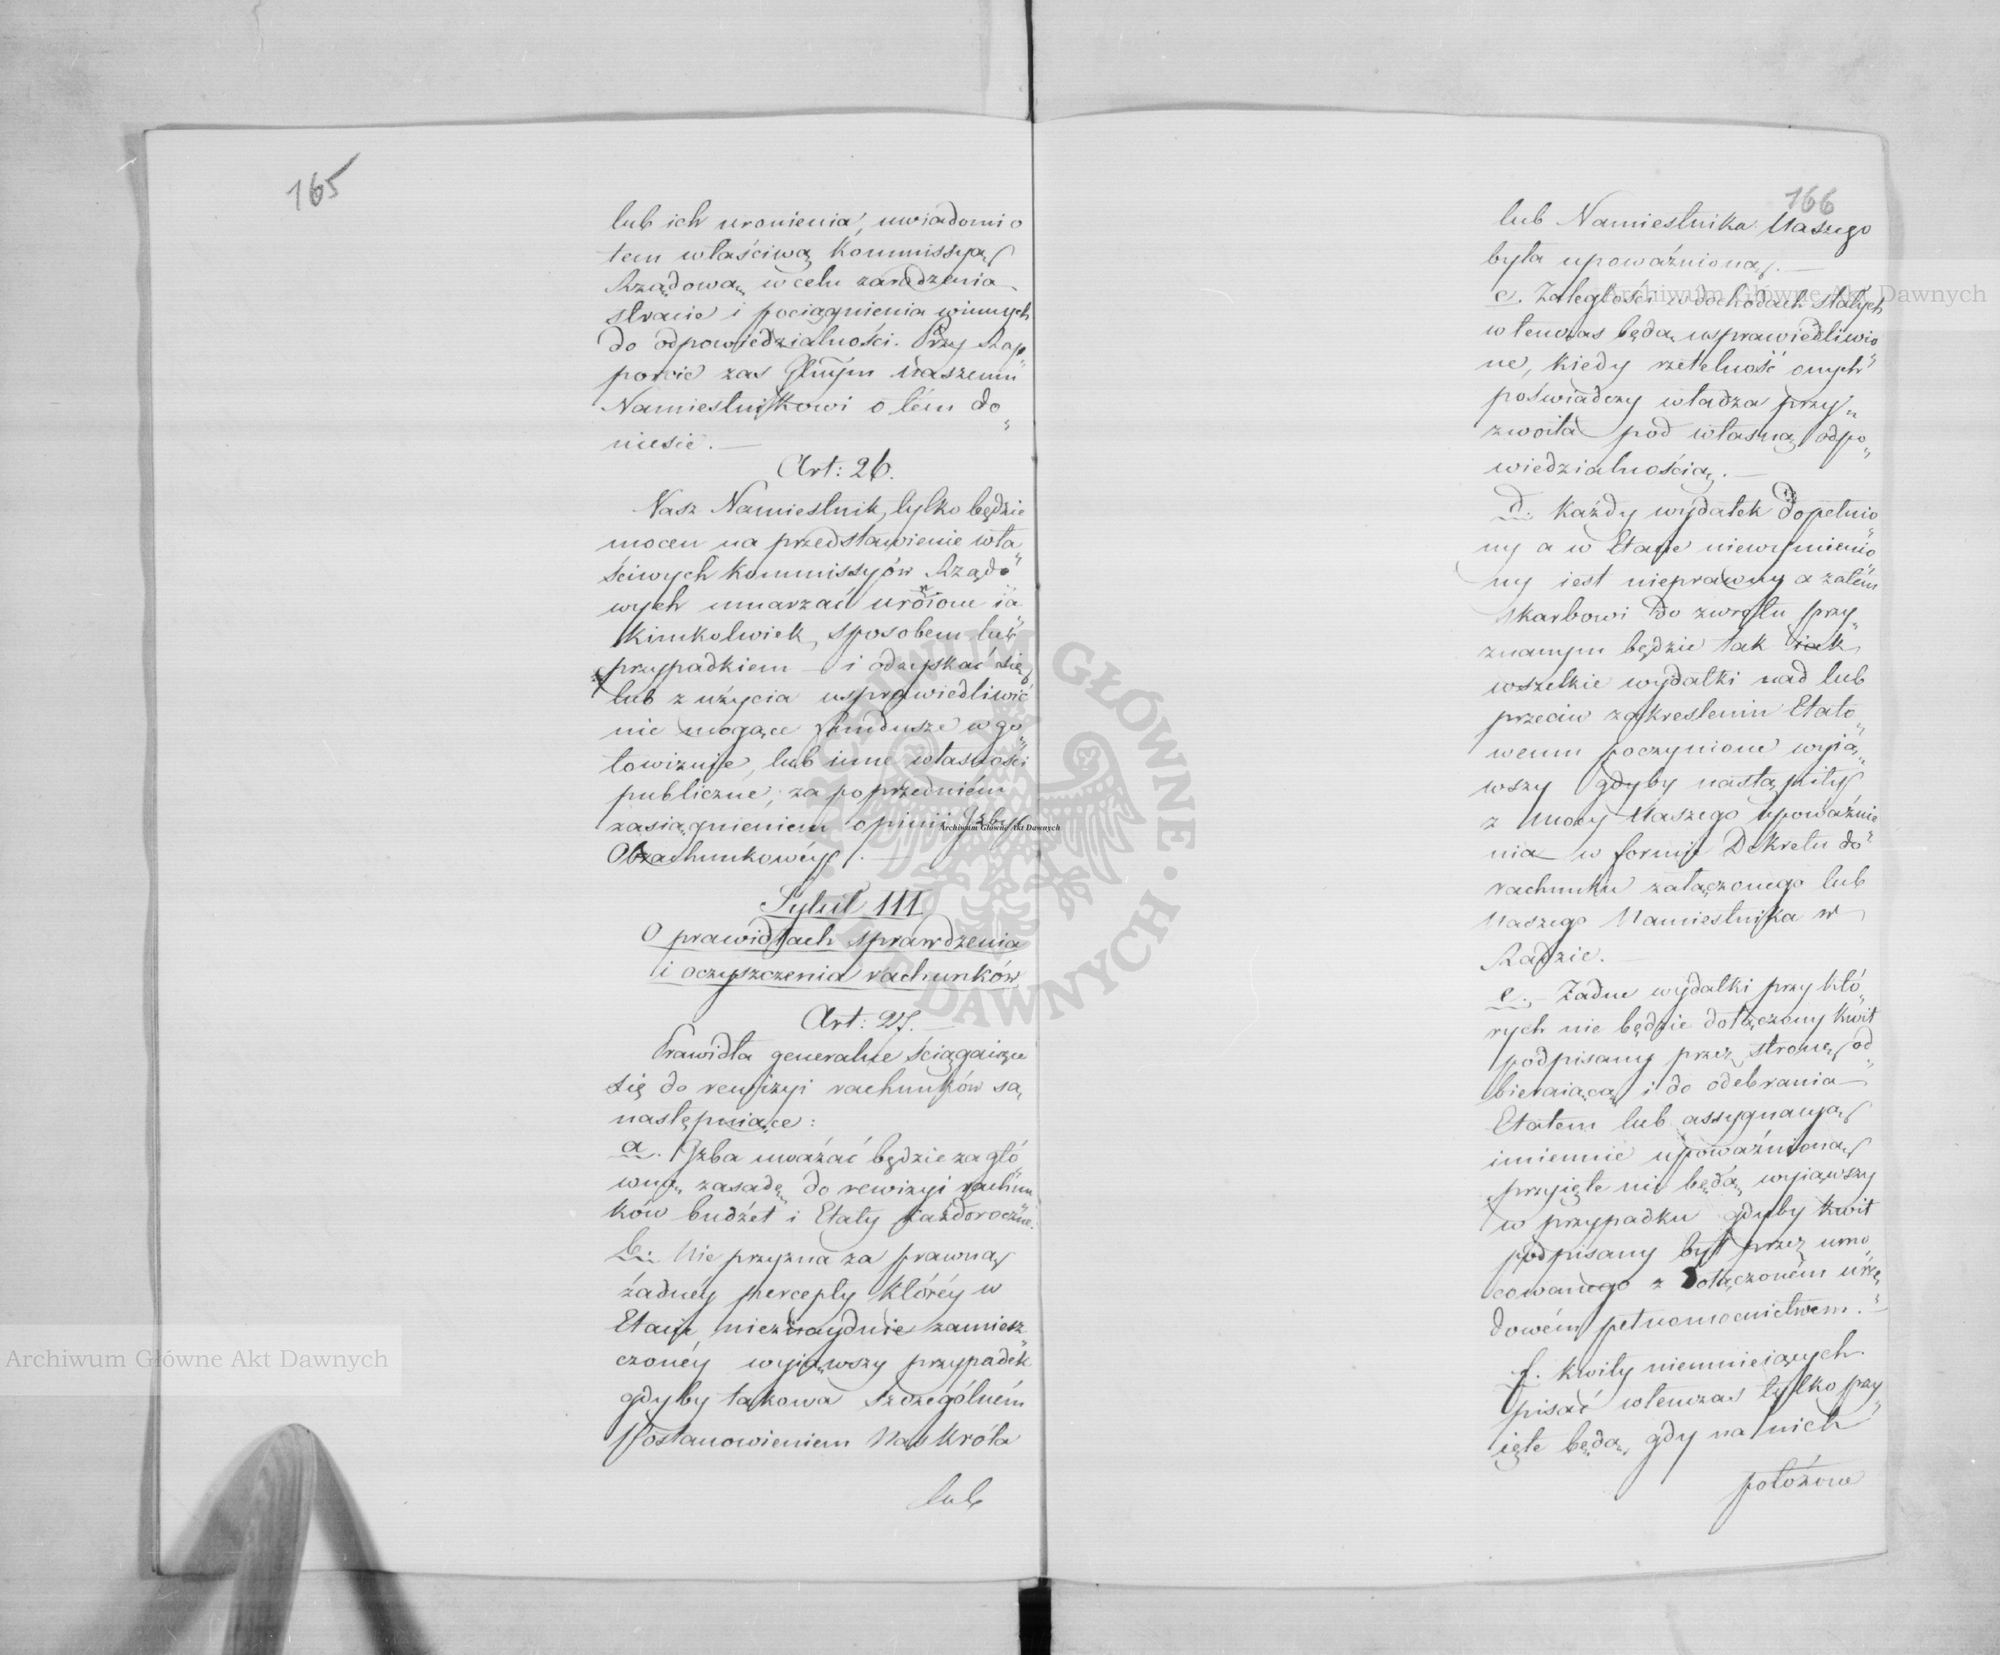 165
lub ich uronienia, uwiadomi o
tem właściwą Kommissyą
Rządową, w celu zaradzenia
stracie i pociągnienia winnych
do odpowiedzialności. Przy Rap„
porcie zaś Głnym Naszemu
Namiestnikowi o tém do„
niesie. —
Art: 26.
Nasz Namiestnik, tylko będzie
mocen na przedstawienie wła„
ściwych Kommissyów Rządo„
wych umarzać uronione ia„
kimkolwiek, sposobem lub
przypadkiem — i odzyskać się
lub z użycia usprawiedliwić
nie mogące fundusze w go„
towiznie, lub inne własności
publiczne, za poprzedniém
zasiągnieniem opinii Izby
Obrachunkowéy. —
Tytuł III
O prawidłach sprawdzenia
i oczyszczenia rachunków
Art: 27. —
Prawidła generalne ściągaiące
się do rewizyi rachunków są
następuiące:
a. Izba uważać będzie za głó„
wną zasadę, do rewizyi rachun„
ków budżet i Etaty każdoroczne.
b. Nie przyzna za prawną
żadnéy percepty któréy w
Etacie nieznayduie zamiesz„
czonéy wyiąwszy przypadek
gdyby takowa szczególném
Postanowieniem Nas Króla
lub
166
lub Namiestnika Naszego
była upoważnioną. —
c. Zaległości w dochodach stałych
wtenczas będą usprawiedliwio„
ne, kiedy rzetelność onych
poświadczy władza przy„
zwoita pod własną odpo„
wiedzialnością. —
d. Każdy wydatek dopełnio„
ny a w Etacie niewymienio„
ny iest nieprawny a zatém
skarbowi do zwrotu przy„
znanym będzie tak iak
wszelkie wydatki nad lub
przeciw zakresleniu Etato„
wemu poczynione wyią„
wszy gdyby nastąpiły
z mocy Naszego upoważnie„
nia w formie Dekretu do
rachunku załączonego lub
Naszego Namiestnika w
Radzie. —
e. Żadne wydatki przy któ„
rych nie będzie dołączony kwit
podpisany przez stronę od„
bieraiącą i do odebrania
Etatem lub assygnacyą
imiennie upoważnioną
przyięte nie będą, wyiąwszy
w przypadku gdyby kwit
podpisany był przez umo„
cowanego z dołączoném urzę„
dowém pełnomocnictwem.
f. Kwity nieumieiących
pisać wtenczas tylko przy„
ięte będą, gdy na nich
położone
Archiwum Główne Akt Dawnych
Archiwum Główne Akt Dawnych
Archiwum Główne Akt Dawnych
ARCHIWUM GŁÓWNE AKT DAWNYCH